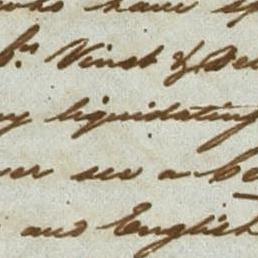 who have sp
Vinct & Bel
ng liquidating
ver see a be
and English